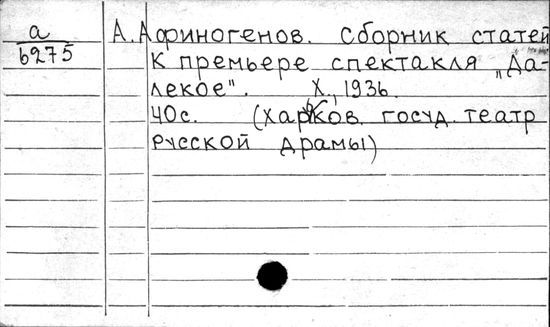 а
6275
А. Афиногенов. Сборник статей
к премьере спектакля „Да-
лекое". Х., 1936.
40с. (Харьков. госуд. театр
русской драмы)